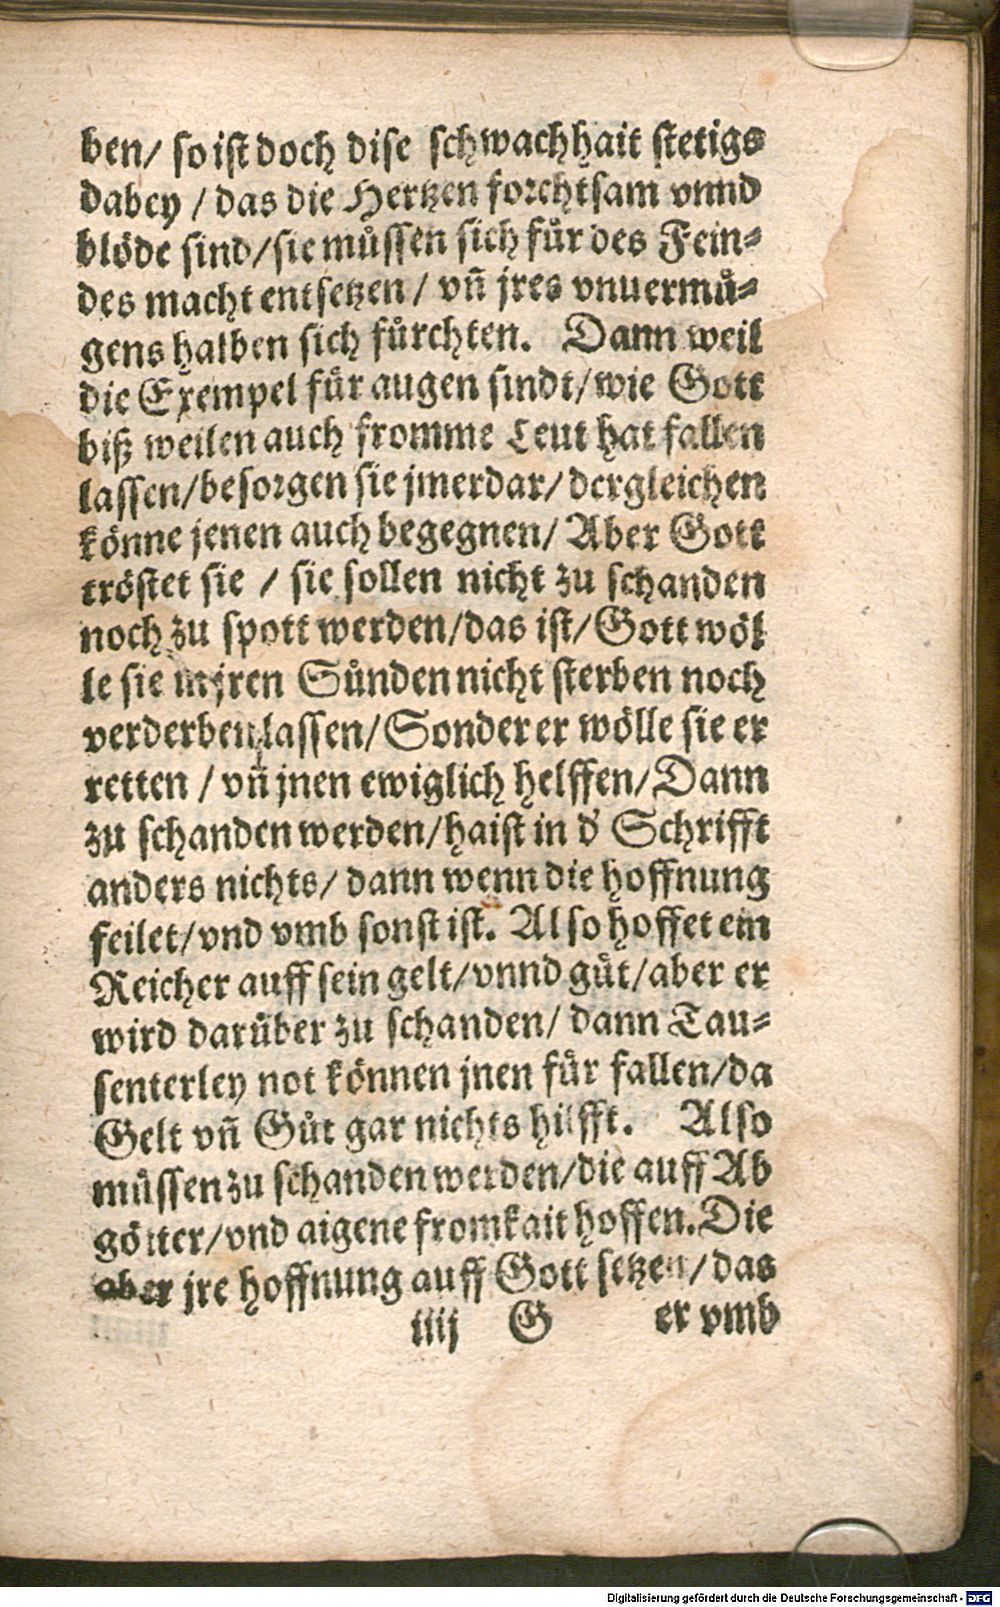 ben/ so ist doch dise schwachhait stetigs
dabey / das die Hertzen forchtsam vnnd
blöde sind/sie müssen sich für des Fein-
des macht entsetzen / vñ jres vnuermü-
gens halben sich fürchten. Dann weil
die Exempel für augen sindt/wie Gott
biß weilen auch fromme Leut hat fallen
lassen/besorgen sie jmerdar/ dergleichen
könne jenen auch begegnen/ Aber Gott
tröstet sie / sie sollen nicht zu schanden
noch zu spott werden/das ist/Gott wöl
le sie in jren Sünden nicht sterben noch
verderben lassen/Sonder er wölle sie er
retten / vñ jnen ewiglich helffen/Dann
zu schanden werden/haist in d' Schrifft
anders nichts/ dann wenn die hoffnung
feilet/vnd vmb sonst ist. Also hoffet ein
Reicher auff sein gelt/vnnd güt/aber er
wird darüber zu schanden/ dann Tau-
senterley not können jnen für fallen/da
Gelt vñ Güt gar nichts hilfft. Also
müssen zu schanden werden/die auff Ab
götter/vnd aigene fromkait hoffen. Die
aber jre hoffnung auff Gott setzen/das
iiij G er vmb
Digitalisierung gefördert durch die Deutsche Forschungsgemeinschaft - DFG